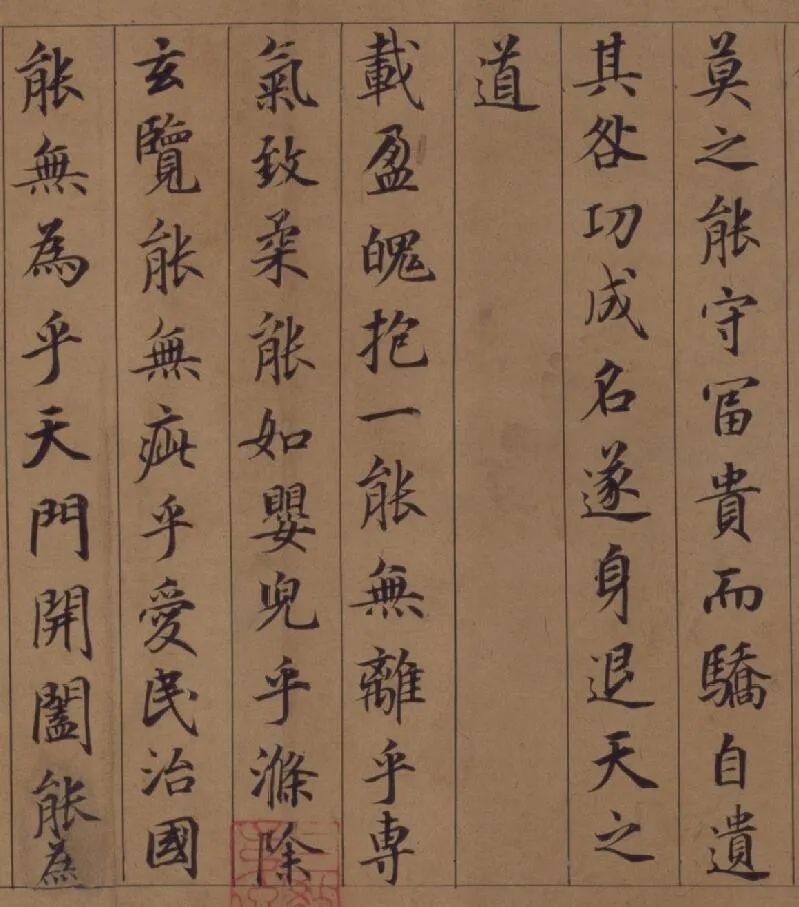 莫之能守富貴而驕自遺
其咎功成名遂身退天之
道
載盈魄抱一能無離乎専
氣致柔能如嬰兒乎滌除
玄覽能無疵乎愛民治國
能無為乎天門開闔能為